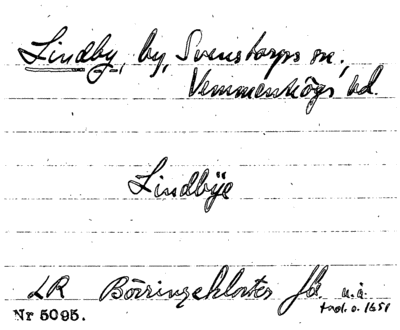 Lindby, by, Svenstorps sn,
Vemmenhögs hd.
Lindbÿe
LR Börringekloster Jb u.å.
trol. o. 1651
Nr 5095.